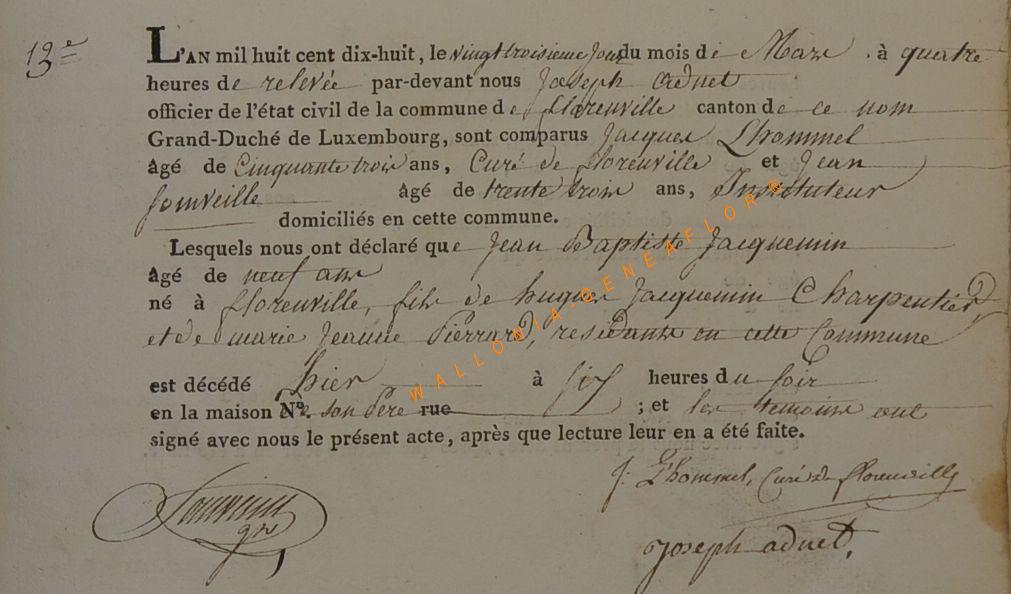 13e
L'AN mil huit cent dix-huit, le vingt troisieme jour du mois de Mars à quatre
heures de relevée par-devant nous Joseph adnet
officier de l'état civil de la commune de florenville canton de ce nom
Grand-Duché de Luxembourg, sont comparus Jacques Lhommel
âgé de Cinquante trois ans, Curé de florenville et Jean
Jonveille âgé de trente trois ans, Instituteur
domiciliés en cette commune.
Lesquels nous ont déclaré que Jean Baptiste Jacquemin
âgé de neuf ans
né à florenville, fils de hugues Jacquemin Charpentier,
et de marie Jeanne Pierrard, residants en cette Commune
est décédé hier à six heures du soir
en la maison No. de son Pere rue ; et les temoins ont
signé avec nous le présent acte, après que lecture leur en a été faite.
J. L'hommel, Curé de florenville
joseph adnet.
WALLONIA-GENEAFLORE